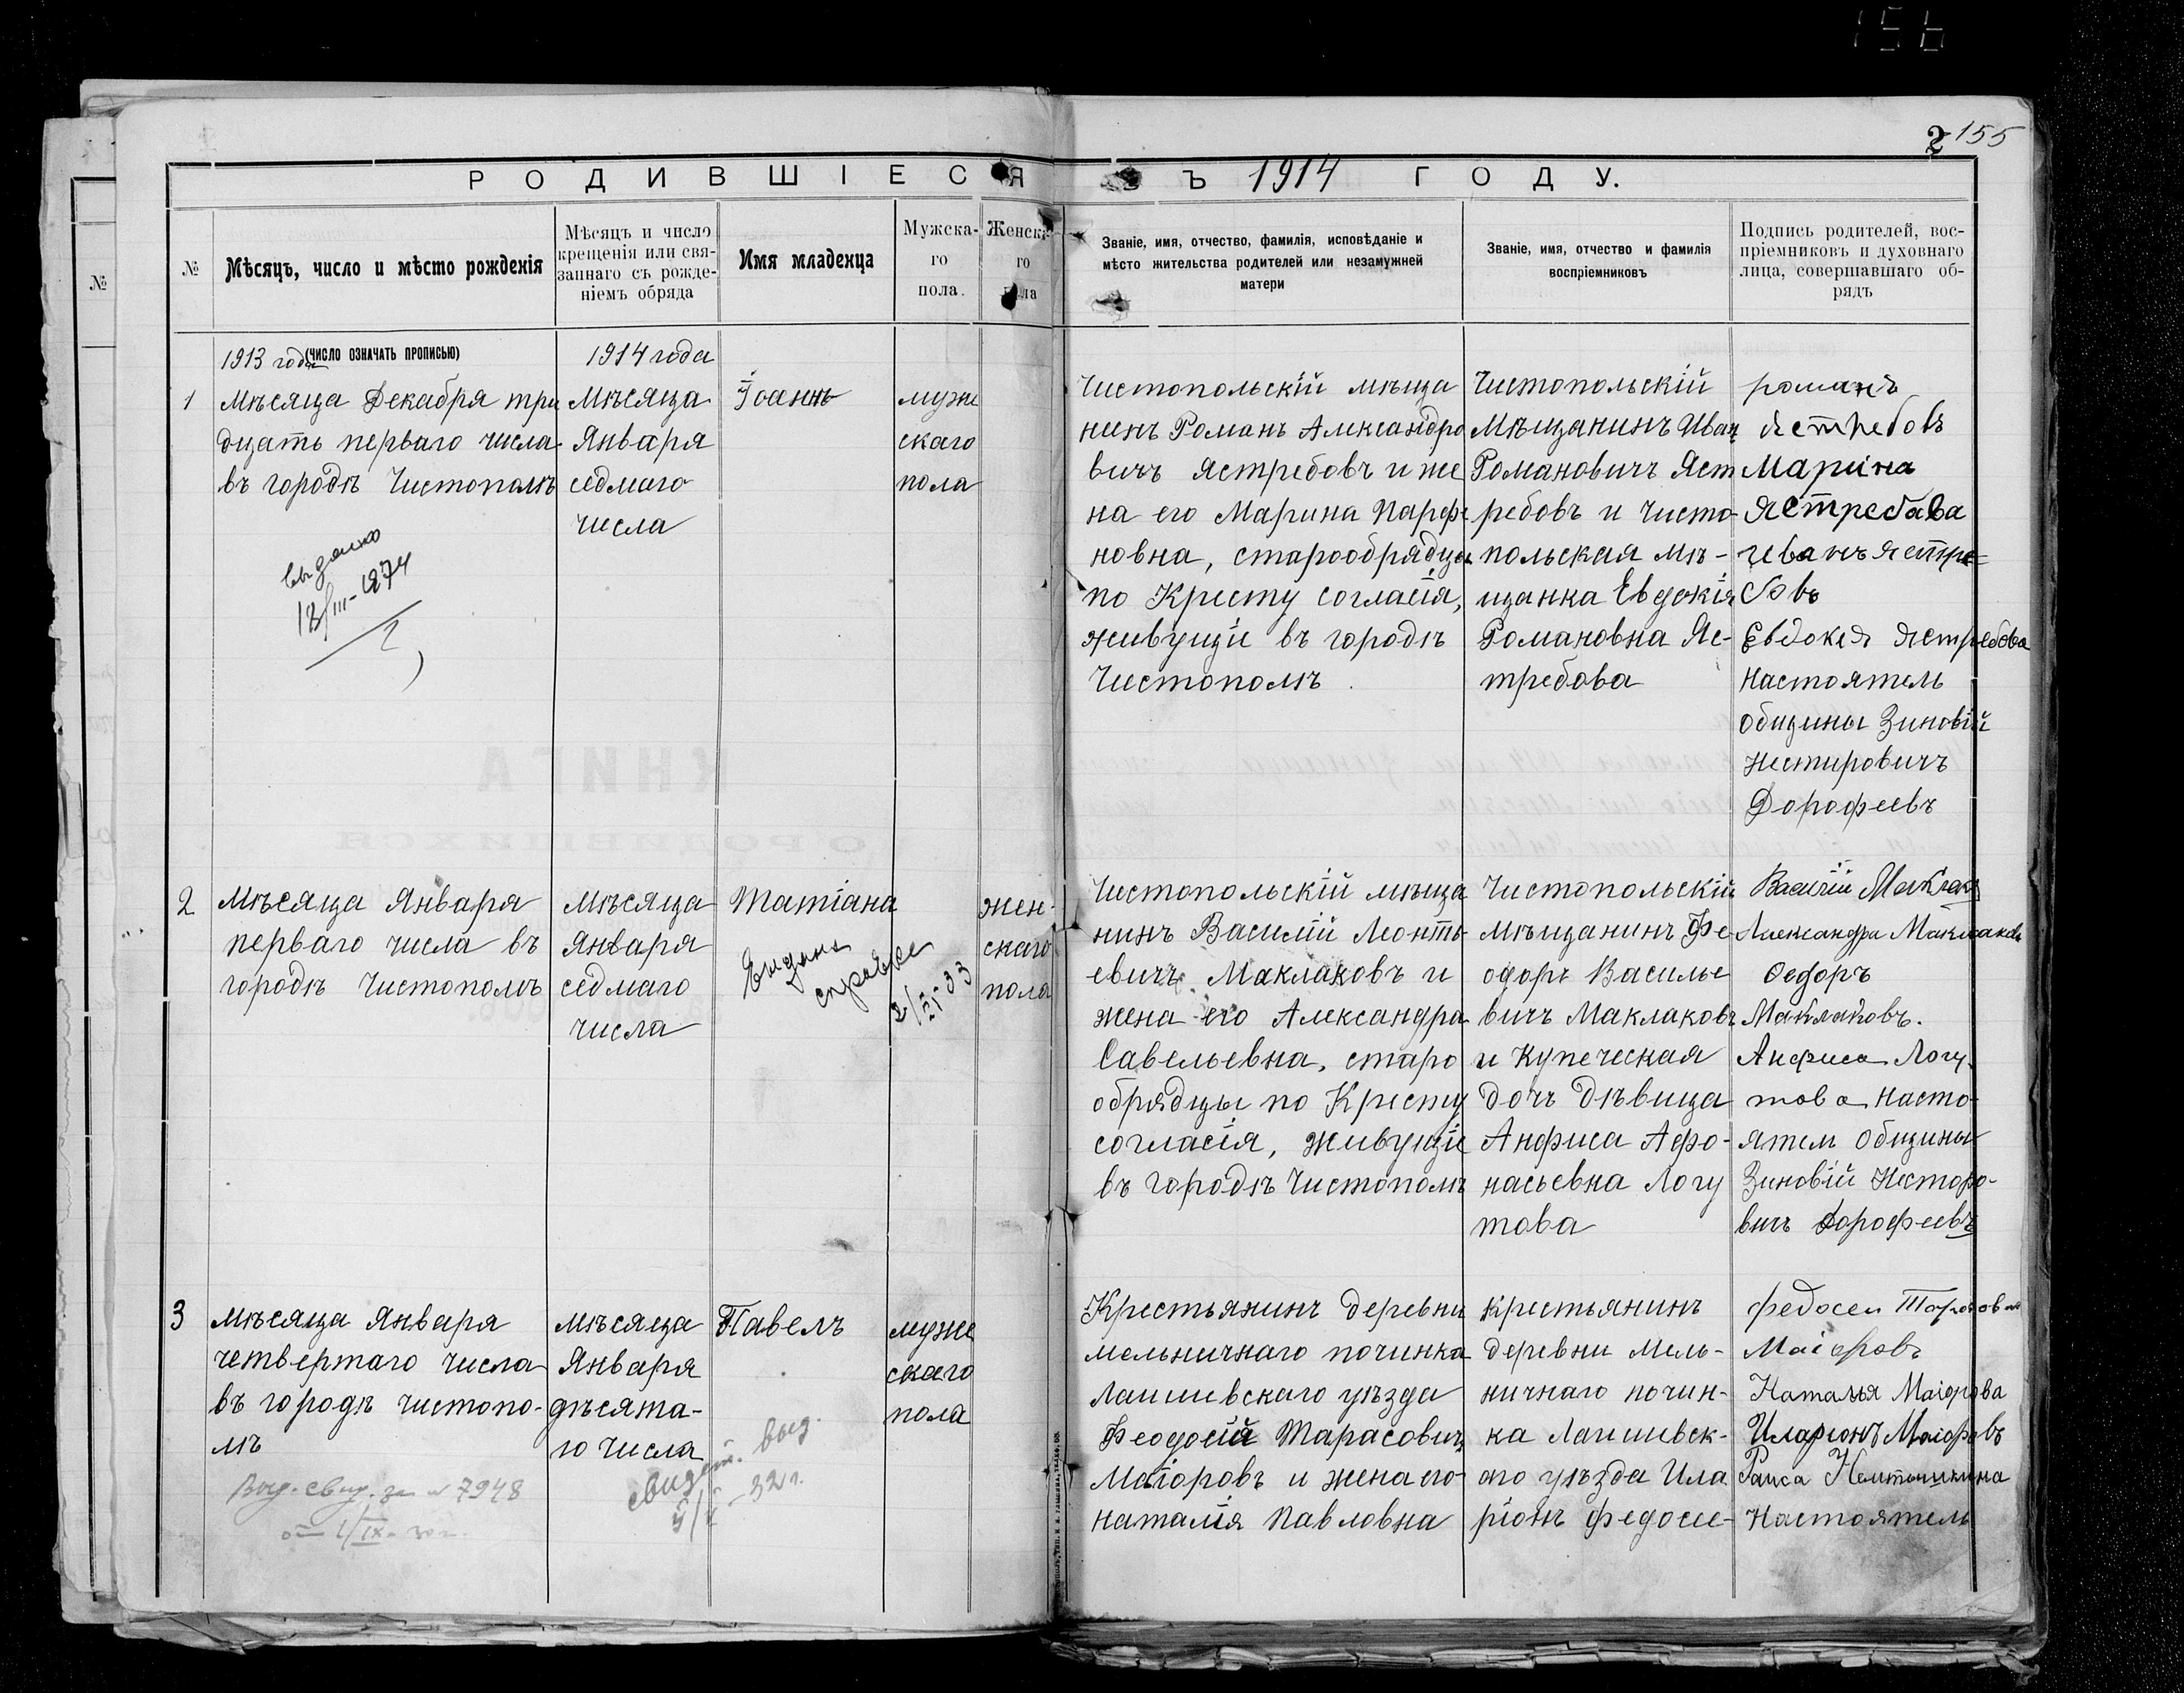 156
2 155
РОДИВШІЕСЯ ВЪ 1914 ГОДУ.
№
№
Мѣсяцъ, число и мѣсто рожденія
Мѣсяцъ и число
крещенія или свя-
заннаго съ рожде-
ніемъ обряда
Имя младенца
Мужска-
го
пола.
Женска-
го
пола
Званіе, имя, отчество, фамилія, исповѣданіе и
мѣсто жительства родителей или незамужней
матери
Званіе, имя, отчество и фамилія
воспріемниковъ
Подпись родителей, вос-
пріемниковъ и духовнаго
лица, совершавшаго об-
рядъ
1913 года (ЧИСЛО ОЗНАЧАТЬ ПРОПИСЬЮ)
1914 года
1
Мѣсяца Декабря три
дцать перваго числа
въ городѣ Чистополѣ
Мѣсяца
Января
седмаго
числа
Іоаннъ
муже
скаго
пола
Чистопольскій мѣща
нинъ Романъ Александро
вичъ Ястребовъ и же
на его Марина Парфе
новна, старообрядцы
по Кресту согласія,
живущіе въ городѣ
Чистополѣ.
Чистопольскій
Мѣщанинъ Иван
Романовичъ Яст
ребовъ и Чисто-
польская мѣ-
щанка Евдокія
Романовна Яс-
требова
романъ
Ястребовъ
Марина
Ястребава
иванъ ястре-
бовъ
Евдокея Ястребова
Настоятель
общины Зиновій
Нестировичъ
Дорофеевъ
выдано
12/III-1974
2
Мѣсяца Января
перваго числа въ
городѣ Чистополѣ
Мѣсяца
Января
седмаго
числа
Татіана
жен-
скаго
пола
Выдана
справка
Чистопольскій мѣща
нинъ Василій Леонть
евичъ Маклаковъ и
жена его Александра
Савельевна, старо
обрядцы по Кресту
согласія, живущіе
въ городѣ Чистополѣ
Чистопольскій
мѣщанинъ Фе-
одоръ Василье
вичъ Маклаковъ
и Купеческая
дочъ дѣвица
Анфиса Афо-
насьевна Логу
това
Василій Маклаков
Александра Маклакова
Ѳедоръ
Маклаковъ.
Анфиса Логу-
това Насто-
ятель общины
Зиновій Несторо-
вичъ Дорофеевъ
3
Мѣсяца Января
четвертаго числа
въ городѣ чистопо-
лѣ
мѣсяца
Января
дѣсята-
го числа
Павелъ
муже
скаго
пола
Крестьянинъ деревни
мельничнаго починка
Лаишевскаго уѣзда
Феодосій Тарасович
Маіоровъ и жена его
Наталія Павловна
крестьянинъ
деревни Мель-
ничнаго почин-
ка Лаишевск-
аго уѣзда Ила
ріонъ Федосее-
федосеи
Маіоровъ
Наталья Маіорова
Иларіонъ Маіоровъ
Раиса
Настоятель
Выд. свид. за № 7948
свидет. выд.